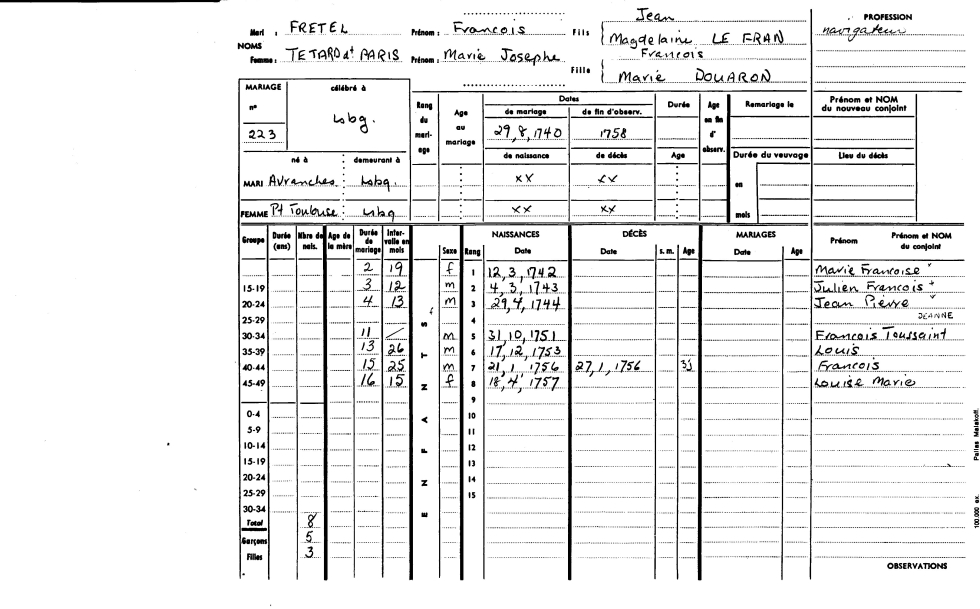 Jean
PROFESSION
Mari : FRETEL Prénom : Francois Fils navigateur
Magdelaine LE FRAN
NOMS
Francois
Femme : TETARD dt PARIS Prénom : Marie Josephe
Fille
Marie DOUARON
MARIAGE célébré à
Rang du mariage Age au mariage Dates Durée Age en fin d'observ. Remariage le Prénom et NOM du nouveau conjoint
de mariage de fin d'observ.
n° Lsbg.
223 29,8,1740 1758
de naissance de décès Age Durée du veuvage Lieu du décès
né à demeurant à
MARI Avranches Lsbg. xx xx en
FEMME Pt Toulouse Lsbg xx xx mois
Groupe Durée (ans) Nbre de nais. Age de la mère Durée de mariage Intervalle en mois ENFANTS Sexe Rang NAISSANCES Date DÉCÈS Date s. m. Age MARIAGES Date Age Prénom Prénom et NOM du conjoint
2 19 f 1 12,3,1742 Marie Francoise
15-19 3 12 m 2 4,3,1743 Julien Francois +
20-24 4 13 m 3 29,4,1744 Jean Pierre
25-29 f 4 JEANNE
30-34 11 / m 5 31,10,1751 Francois Toussaint
35-39 13 26 m 6 17,12,1753 Louis
40-44 15 25 m 7 21,1,1756 27,1,1756 3j Francois
45-49 16 15 f 8 18,4,1757 Louise Marie
9
0-4 10
5-9 11
10-14 12
15-19 13
20-24 14
25-29 15
30-34
Total 8
Garçons 5
Filles 3
OBSERVATIONS
100.000 ex.